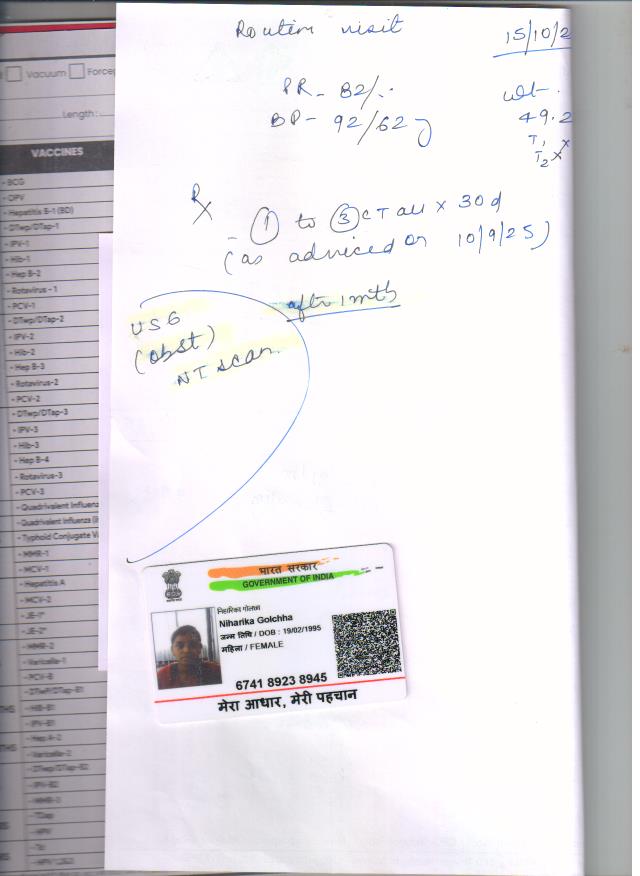 Routine visit
15/10/2
PR - 82/.
BP - 92/62
wt.
49.2
T1 x
T2 x
Rx
- 1 to 3 CT all x 30 d
(as adviced on 10/9/25)
after 1 mth
USG
(obst)
NT scan.
भारत सरकार
GOVERNMENT OF INDIA
निहारिका गोलछा
Niharika Golchha
जन्म तिथि / DOB : 19/02/1995
महिला / FEMALE
6741 8923 8945
मेरा आधार, मेरी पहचान
Vacuum Forcep
Length:
VACCINES
- BCG
- OPV
- Hepatitis B-1 (BD)
- DTwp/DTap-1
- IPV-1
- Hib-1
- Hep B-2
- Rotavirus - 1
- PCV-1
- DTwp/DTap-2
- IPV-2
- Hib-2
- Hep B-3
- Rotavirus-2
- PCV-2
- DTwp/DTap-3
- IPV-3
- Hib-3
- Hep B-4
- Rotavirus-3
- PCV-3
- Quadrivalent Influenza
- Quadrivalent Influenza (II
- Typhoid Conjugate Va
- MMR-1
- MCV-1
- Hepatitis A
- MCV-2
- JE-1*
- JE-2*
- MMR-2
- Varicella-1
- PCV-B
- DTwP/DTap-B1
- HiB-B1
- IPV-B1
- Hep A-2
- Varicella-2
- DTwp/DTap-B2
- IPV-B2
- MMR-3
- TDap
- HPV
- Td
- HPV 1,2&3